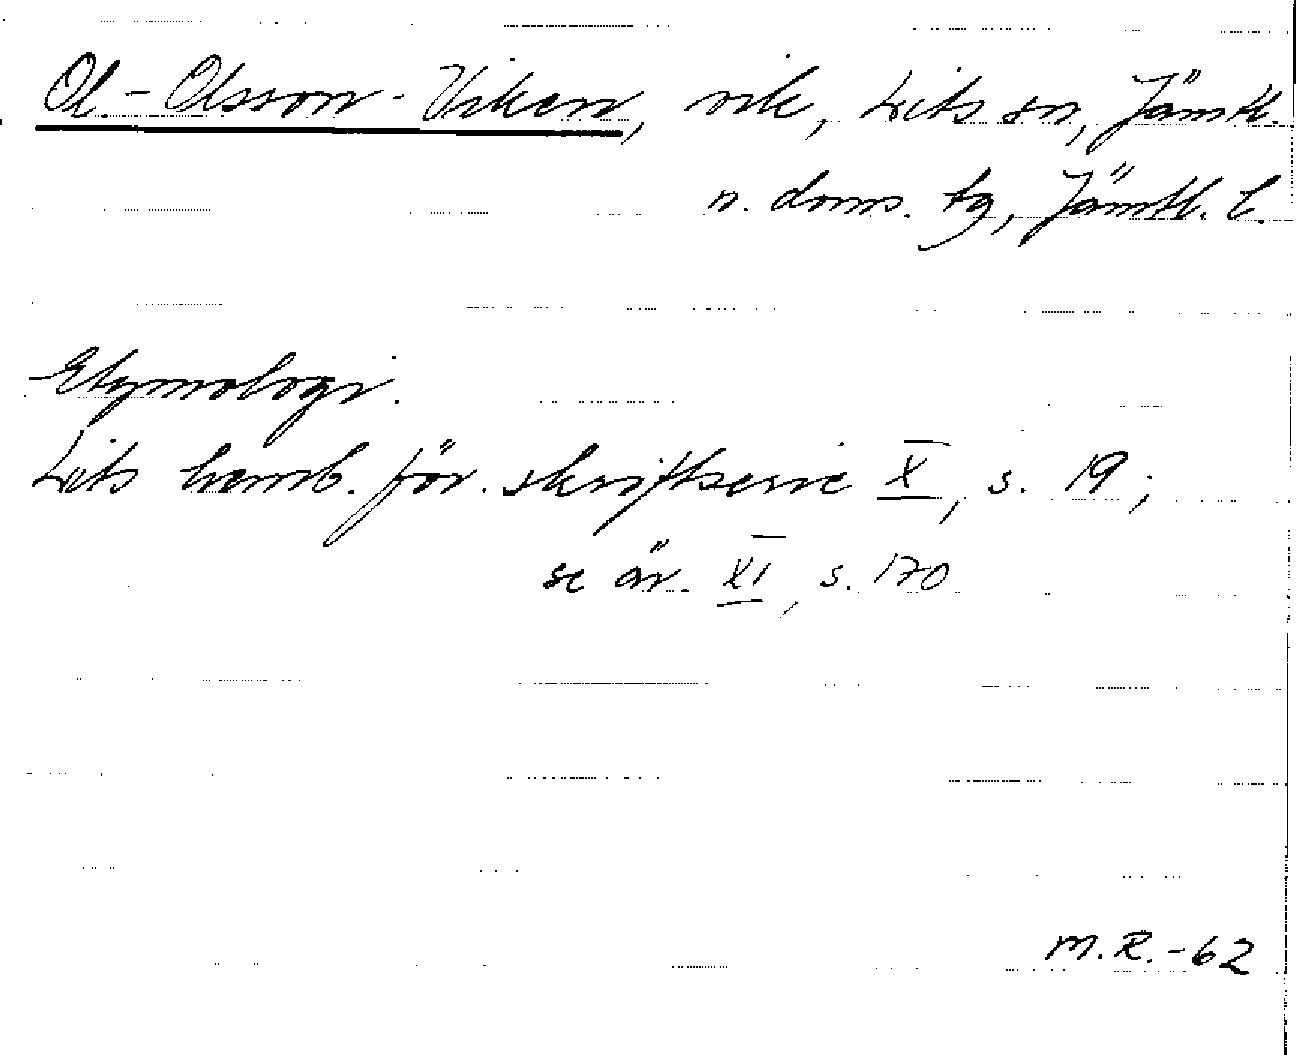 Ol-Olsson-Viken, vik, Lits sn, Jämtl.
n. doms. tg, Jämtl. l.
Etymologi.
Lits hemb. för. skriftserie X, s. 19;
se äv. XI, s. 170
M.R.-62